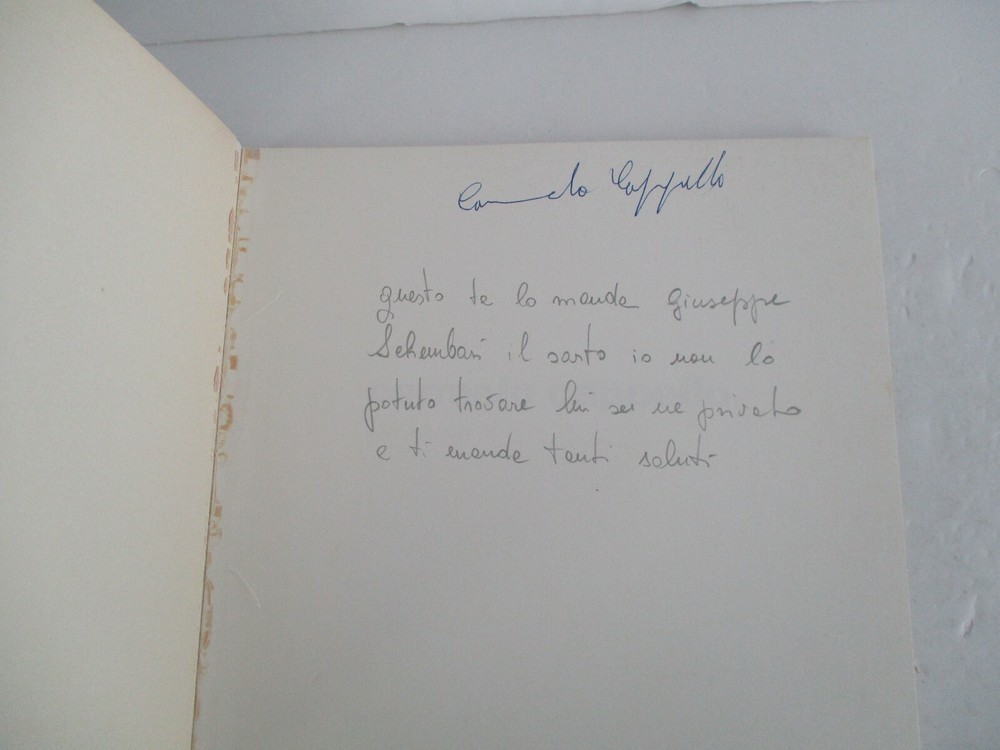 Carmelo Cappello
questo te lo manda Giuseppe
Schembari il sarto io non lo
potuto trovare lui se ne privato
e ti manda tanti saluti